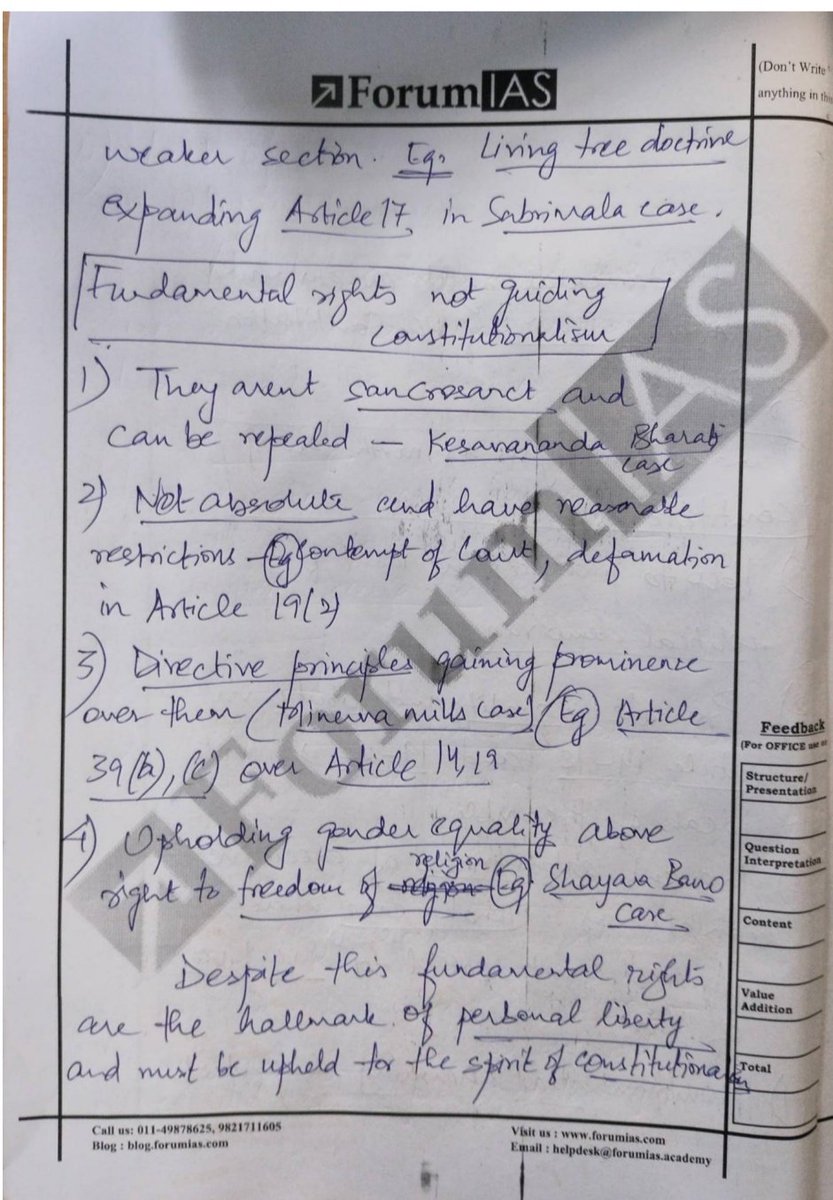 (Don't Write
anything in th
ForumIAS
weaker section. Eg. Living tree doctrine
expanding Article 17 in Sabrimala case.
Fundamental rights not guiding
constitutionalism
1) They arent sancrosanct and
can be repealed – Kesavananda Bharati
case
2) Not absolute and have reasonable
restrictions – Eg Contempt of Court, defamation
in Article 19(2)
3) Directive principles gaining prominence
over them (Minerva mills case) Eg Article
39(b), (c) over Article 14, 19
4) Upholding gender equality above
religion
right to freedom of Eg Shayara Bano
case
Despite this fundamental rights
are the hallmark of personal liberty
and must be upheld for the spirit of constitutionalism
Feedback
(For OFFICE use
Structure/
Presentation
Question
Interpretation
Content
Value
Addition
Total
Call us: 011-49878625, 9821711605
Blog : blog.forumias.com
Visit us : www.forumias.com
Email : helpdesk@forumias.academy
ForumIAS